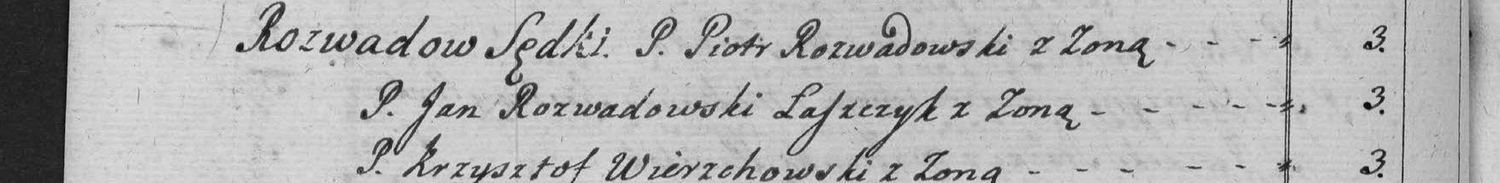 Rozwadow Sędki. P. Piotr Rozwadowski z Zoną - - - - 3.
P. Jan Rozwadowski Laſzczyk z Zoną - - - - - - 3.
P. Krzysztof Wierzchowski z Zoną - - - - - - 3.